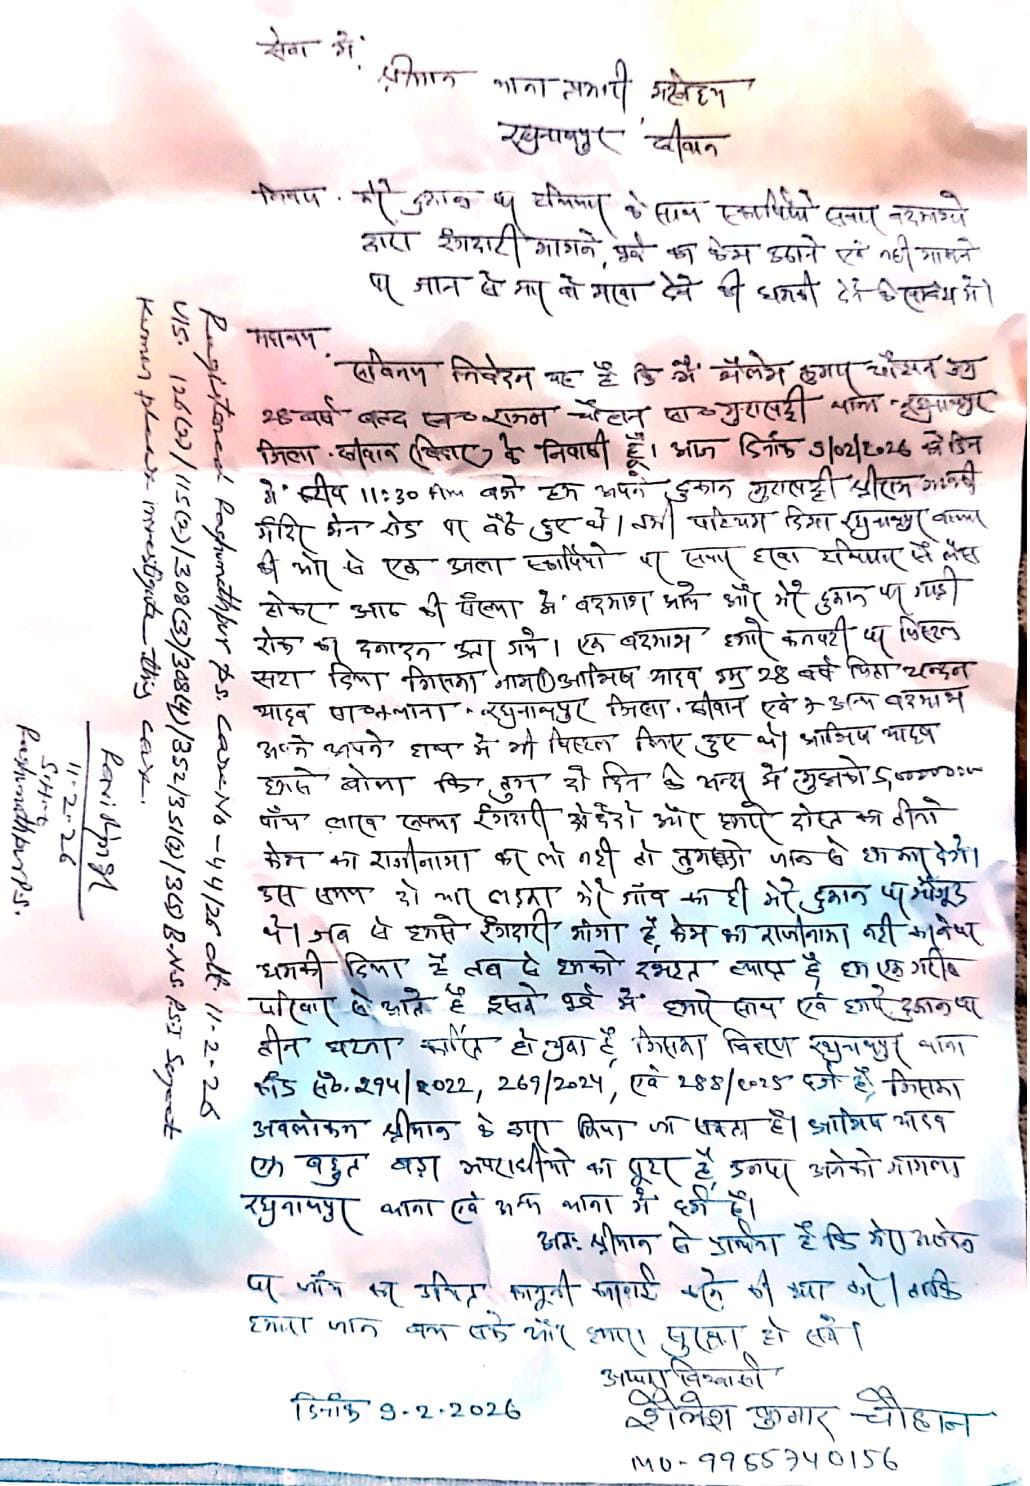 सेवा में,
श्रीमान थाना प्रभारी महोदय
रघुनाथपुर सीवान
विषय - मेरे दुकान पर हथियार के साथ स्कार्पियो सवार बदमाशो
द्वारा रंगदारी मागने, पूर्व का केस उठाने एवं नही मानने
पर जान से मार कर मरवा देने की धमकी देने के सम्बंध में।
महाशय,
सविनय निवेदन यह है कि मैं शैलेश कुमार चौहान उम्र
28 वर्ष वल्द स्व० चौहान सा० मुरारपट्टी थाना - रघुनाथपुर
जिला - सीवान (बिहार) के निवासी हूँ। आज दिनांक 9/02/2026 को दिन
में करीब 11:30 Am बजे हम अपने दुकान मुरारपट्टी श्रीराम जानकी
मंदिर मेन रोड पर बैठे हुए थे। तभी पश्चिम दिशा रघुनाथपुर बाजार
की ओर से एक काला स्कार्पियो पर सवार हरवा हथियार से लैस
होकर आठ की संख्या में बदमाश आये और मेरे दुकान पर गाड़ी
रोक कर दनादन उतर गये। एक बदमाश हमारे कनपटी पर पिस्टल
सटा दिया जिसका नाम ① आशिष यादव उम्र 28 वर्ष पिता चन्दन
यादव सा० - रघुनाथपुर जिला - सीवान एवं अन्य बदमाश
अपने अपने हाथ में भी पिस्टल लिए हुए थे। आशिष यादव
हमसे बोला कि तुम दो दिन के अन्दर में मुझको
पाँच लाख रूपया रंगदारी दे दो और हमारे दोस्त का तीनो
केस का राजीनामा कर लो नही तो तुमको जान से हम मार देगे।
उस समय दो चार लड़का मेरे गाँव का ही मेरे दुकान पर मौजूद
थे। जब से हमसे रंगदारी माँगा है, केस का राजीनामा नही करनेपर
धमकी दिया है तब से हमको दहशत व्याप्त है हम एक गरीब
परिवार से आते है इससे पूर्व में हमारे साथ एवं हमारे दुकान पर
तीन घटना कारित हो चुका है, जिसका विवरण रघुनाथपुर थाना
कांड सं०. 294/2022, 269/2024, एवं 288/2025 दर्ज है, जिसका
अवलोकन श्रीमान के द्वारा किया जा सकता है। आशिष यादव
एक बहुत बड़ा अपराधीयो का ग्रुप है, उनपर अनेको मामला
रघुनाथपुर थाना एवं अन्य थाना में दर्ज है।
अतः श्रीमान से प्रार्थना है कि मेरा आवेदन
पर जाँच कर उचित कानूनी कारवाई करने की कृपा करे। ताकि
हमारा जान बच सके और हमारा सुरक्षा हो सके।
आपका विश्वासी
दिनांक 9-2-2026 शैलेश कुमार चौहान
MO - 9955740156
Registered Raghunathpur P.S. Case No - 44/26 dt. 11-2-26
U/S. 126(2)/115(2)/308(3)/308(4)/352/351(2)/3(5) B.N.S PSI
Kumar please investigate this case.
S.H.O
11-2-26
Raghunathpur P.S.